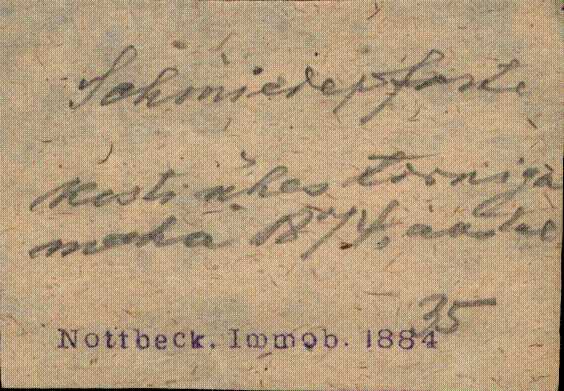 Schmiedepforte
kisti ühes torniga
maha 1874. aastal
35
Nottbeck. Immob. 1884